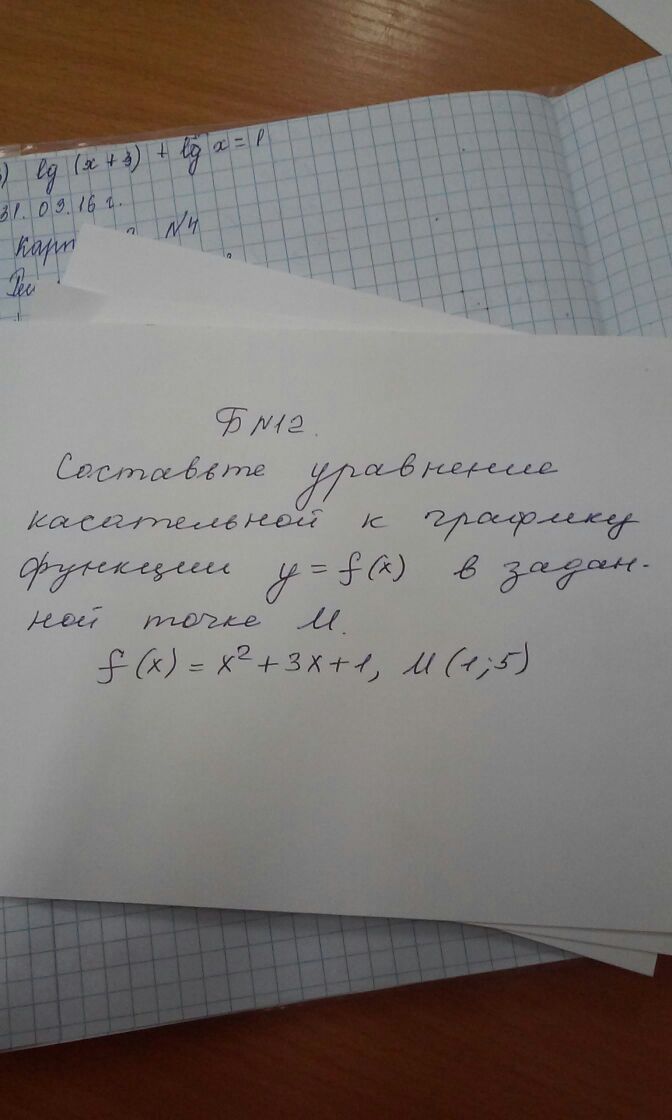 lg (x+3) + lg x = 1
31.03.16 г.
N4
Б N12.
Составьте уравнение
касательной к графику
функции y = f(x) в задан-
ной точке М.
f(x) = x² + 3x + 1, М (1; 5)